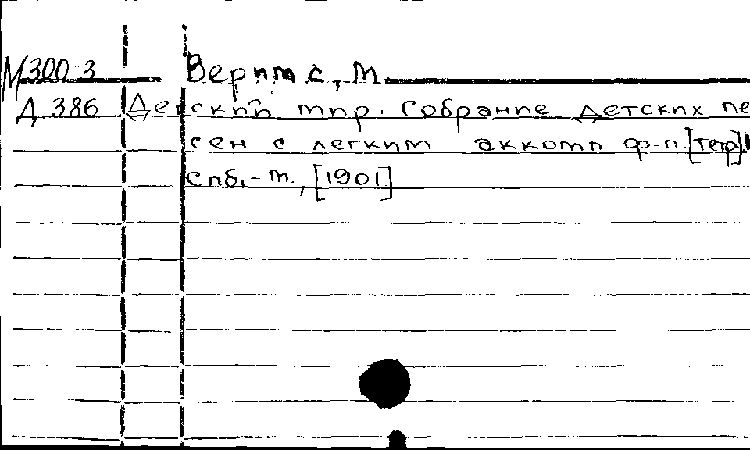 М300-3 Веритс, М.
Д 386 Детский мир. Собрание детских пе
сен с легким аккомп ф-п.
Спб.-М., [1901]